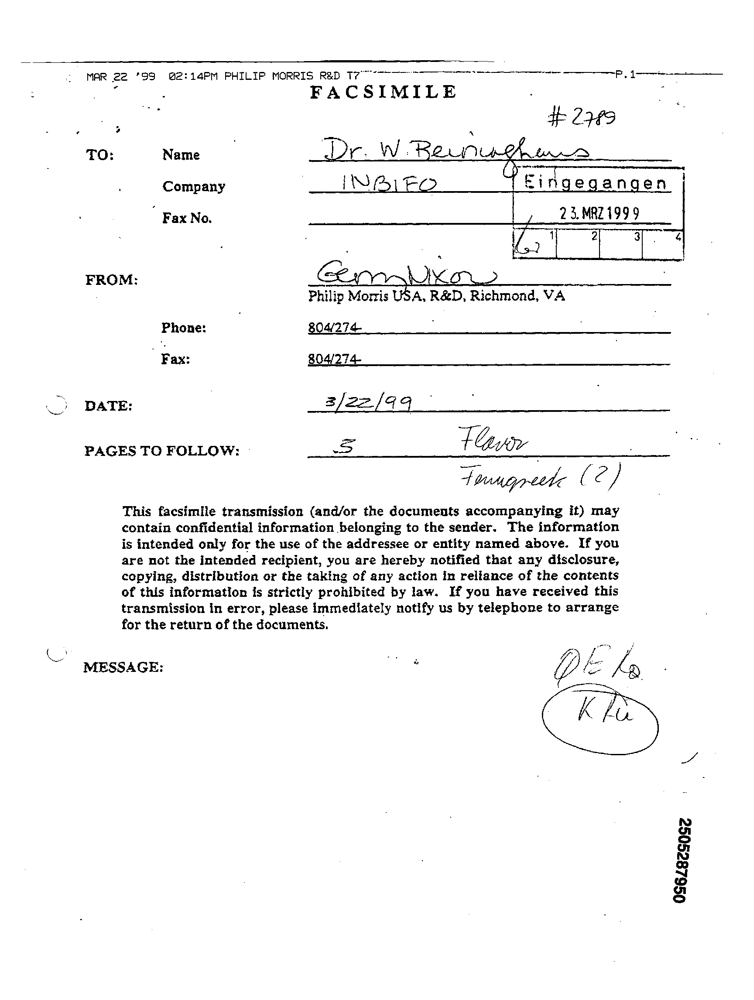 MAR 22 '99 02:14PM PHILIP MORRIS R&D T7 P.1
FACSIMILE
#2789
TO: Name Dr. W. Reininghaus
Company INBIFO
Eingegangen
Fax No.
23. MRZ 1999
1 2 3 4
FROM: Gerry Nixon
Philip Morris USA, R&D, Richmond, VA
Phone: 804/274-
Fax: 804/274-
DATE: 3/22/99
PAGES TO FOLLOW: 5 Flavor
Fenugreek (2)
This facsimile transmission (and/or the documents accompanying it) may
contain confidential information belonging to the sender. The information
is intended only for the use of the addressee or entity named above. If you
are not the intended recipient, you are hereby notified that any disclosure,
copying, distribution or the taking of any action in reliance of the contents
of this information is strictly prohibited by law. If you have received this
transmission in error, please immediately notify us by telephone to arrange
for the return of the documents.
MESSAGE:
2505287950